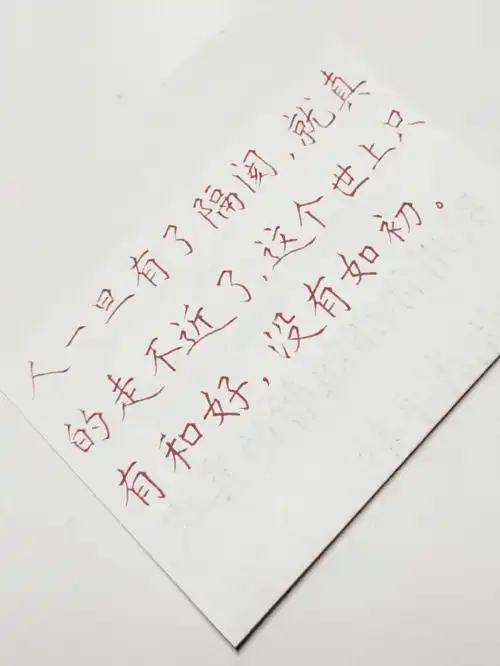 人一旦有了隔阂,就真
的走不近了,这个世上只
有和好,没有如初。